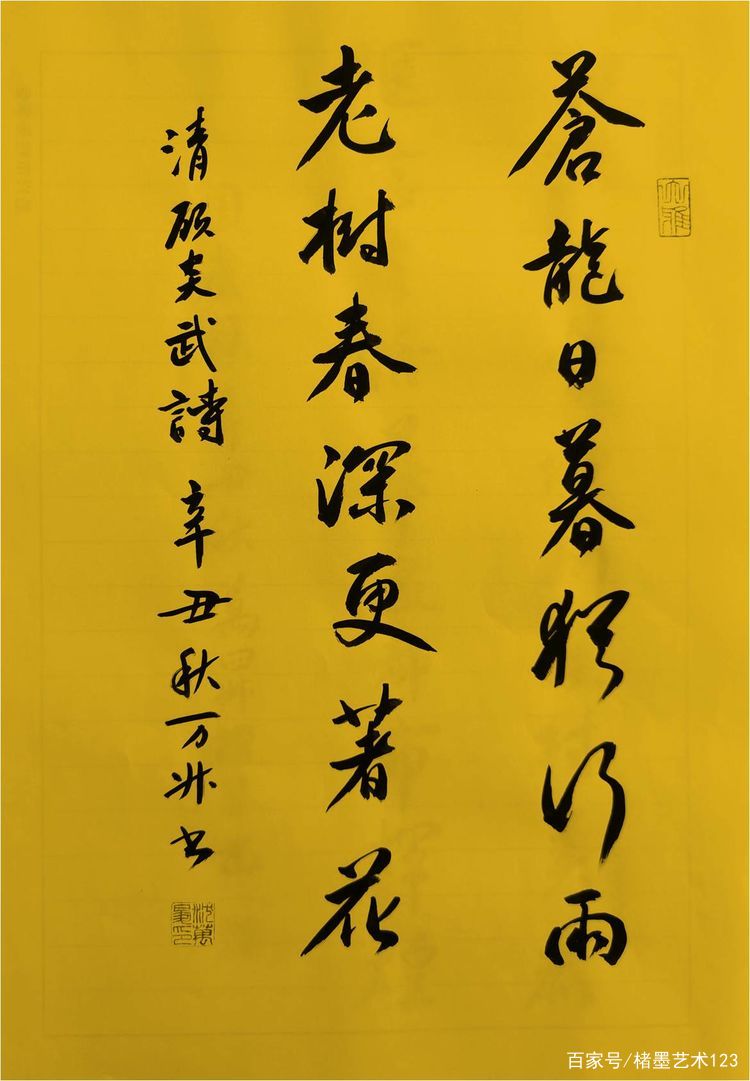 蒼龍日暮猶行雨
老樹春深更著花
清顾炎武詩 辛丑秋 万
百家号/楮墨艺术123